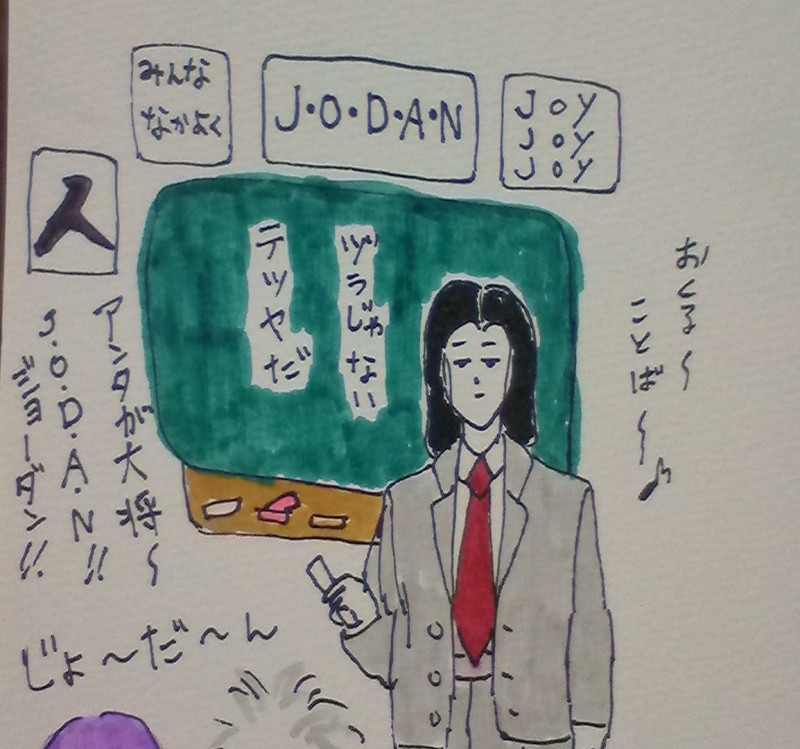 みんな
なかよく
J・O・D・A・N
JOY
JOY
JOY
人
ヅラじゃない
テツヤだ
おくる〜
ことば〜♪
アンタが大将〜
J・O・D・A・N!!
ジョーダン!!
じょ〜だ〜ん